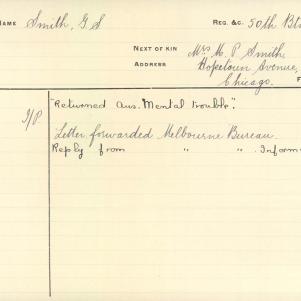 NAME Smith, G S REG. &C. 50th Btn
NEXT OF KIN Mrs M. P. Smith
ADDRESS Hopetown Avenue,
Chicago.
"Returned Aus. Mental trouble".
I/P
Letter forwarded Melbourne Bureau.
Reply from " " Inform